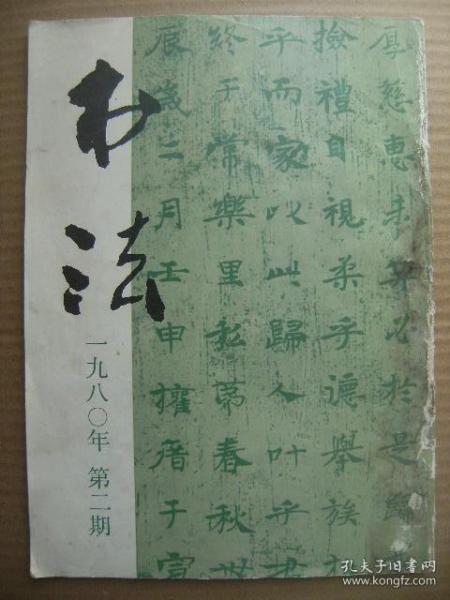 书法
一九八〇年 第二期
厚慈惠
必於是
撿禮自視柔乎讌舉族
乎而家以此歸人叶乎
終于常樂里私第春秋世
辰歲二月壬申擁厝于
孔夫子旧书网
www.kongfz.com